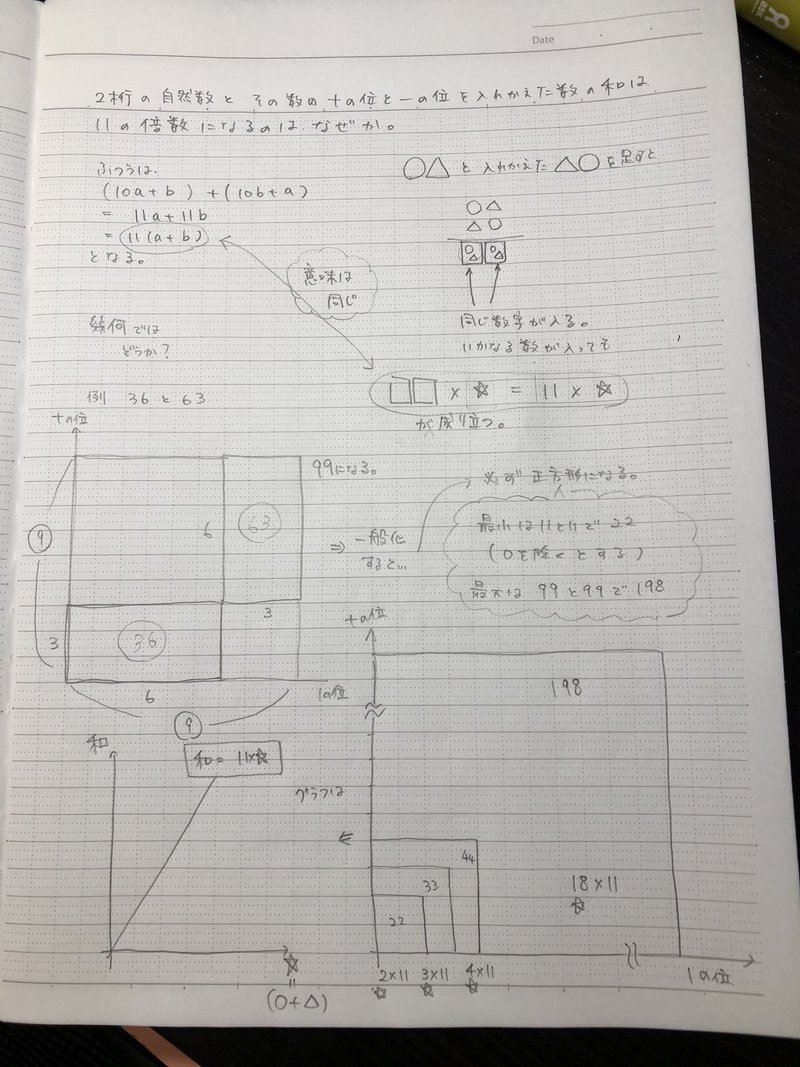 Date
2桁の自然数と その数の十の位と一の位を入れかえた数の和は
11の倍数になるのは なぜか。
ふつうは、
(10a+b)+(10b+a)
= 11a+11b
= 11(a+b)
となる。
○△と入れかえた△○を足すと
○△
△○
○△ ○△
意味は
同じ
同じ数字が入る。
いかなる数が入っても
□□×☆ = 11×☆
が成り立つ。
幾何では
どうか?
例 36と63
十の位
99になる。
9
6
63
3
36
3
6
1の位
9
⇒ 一般化
すると…
→ 必ず正方形になる。
最小は11と11で22
(0を除くとする)
最大は 99と99で198
十の位
198
44
33
22
18×11
☆
2×11
☆
3×11
☆
4×11
☆
1の位
グラフは
←
和
和=11×☆
☆
=
(○+△)